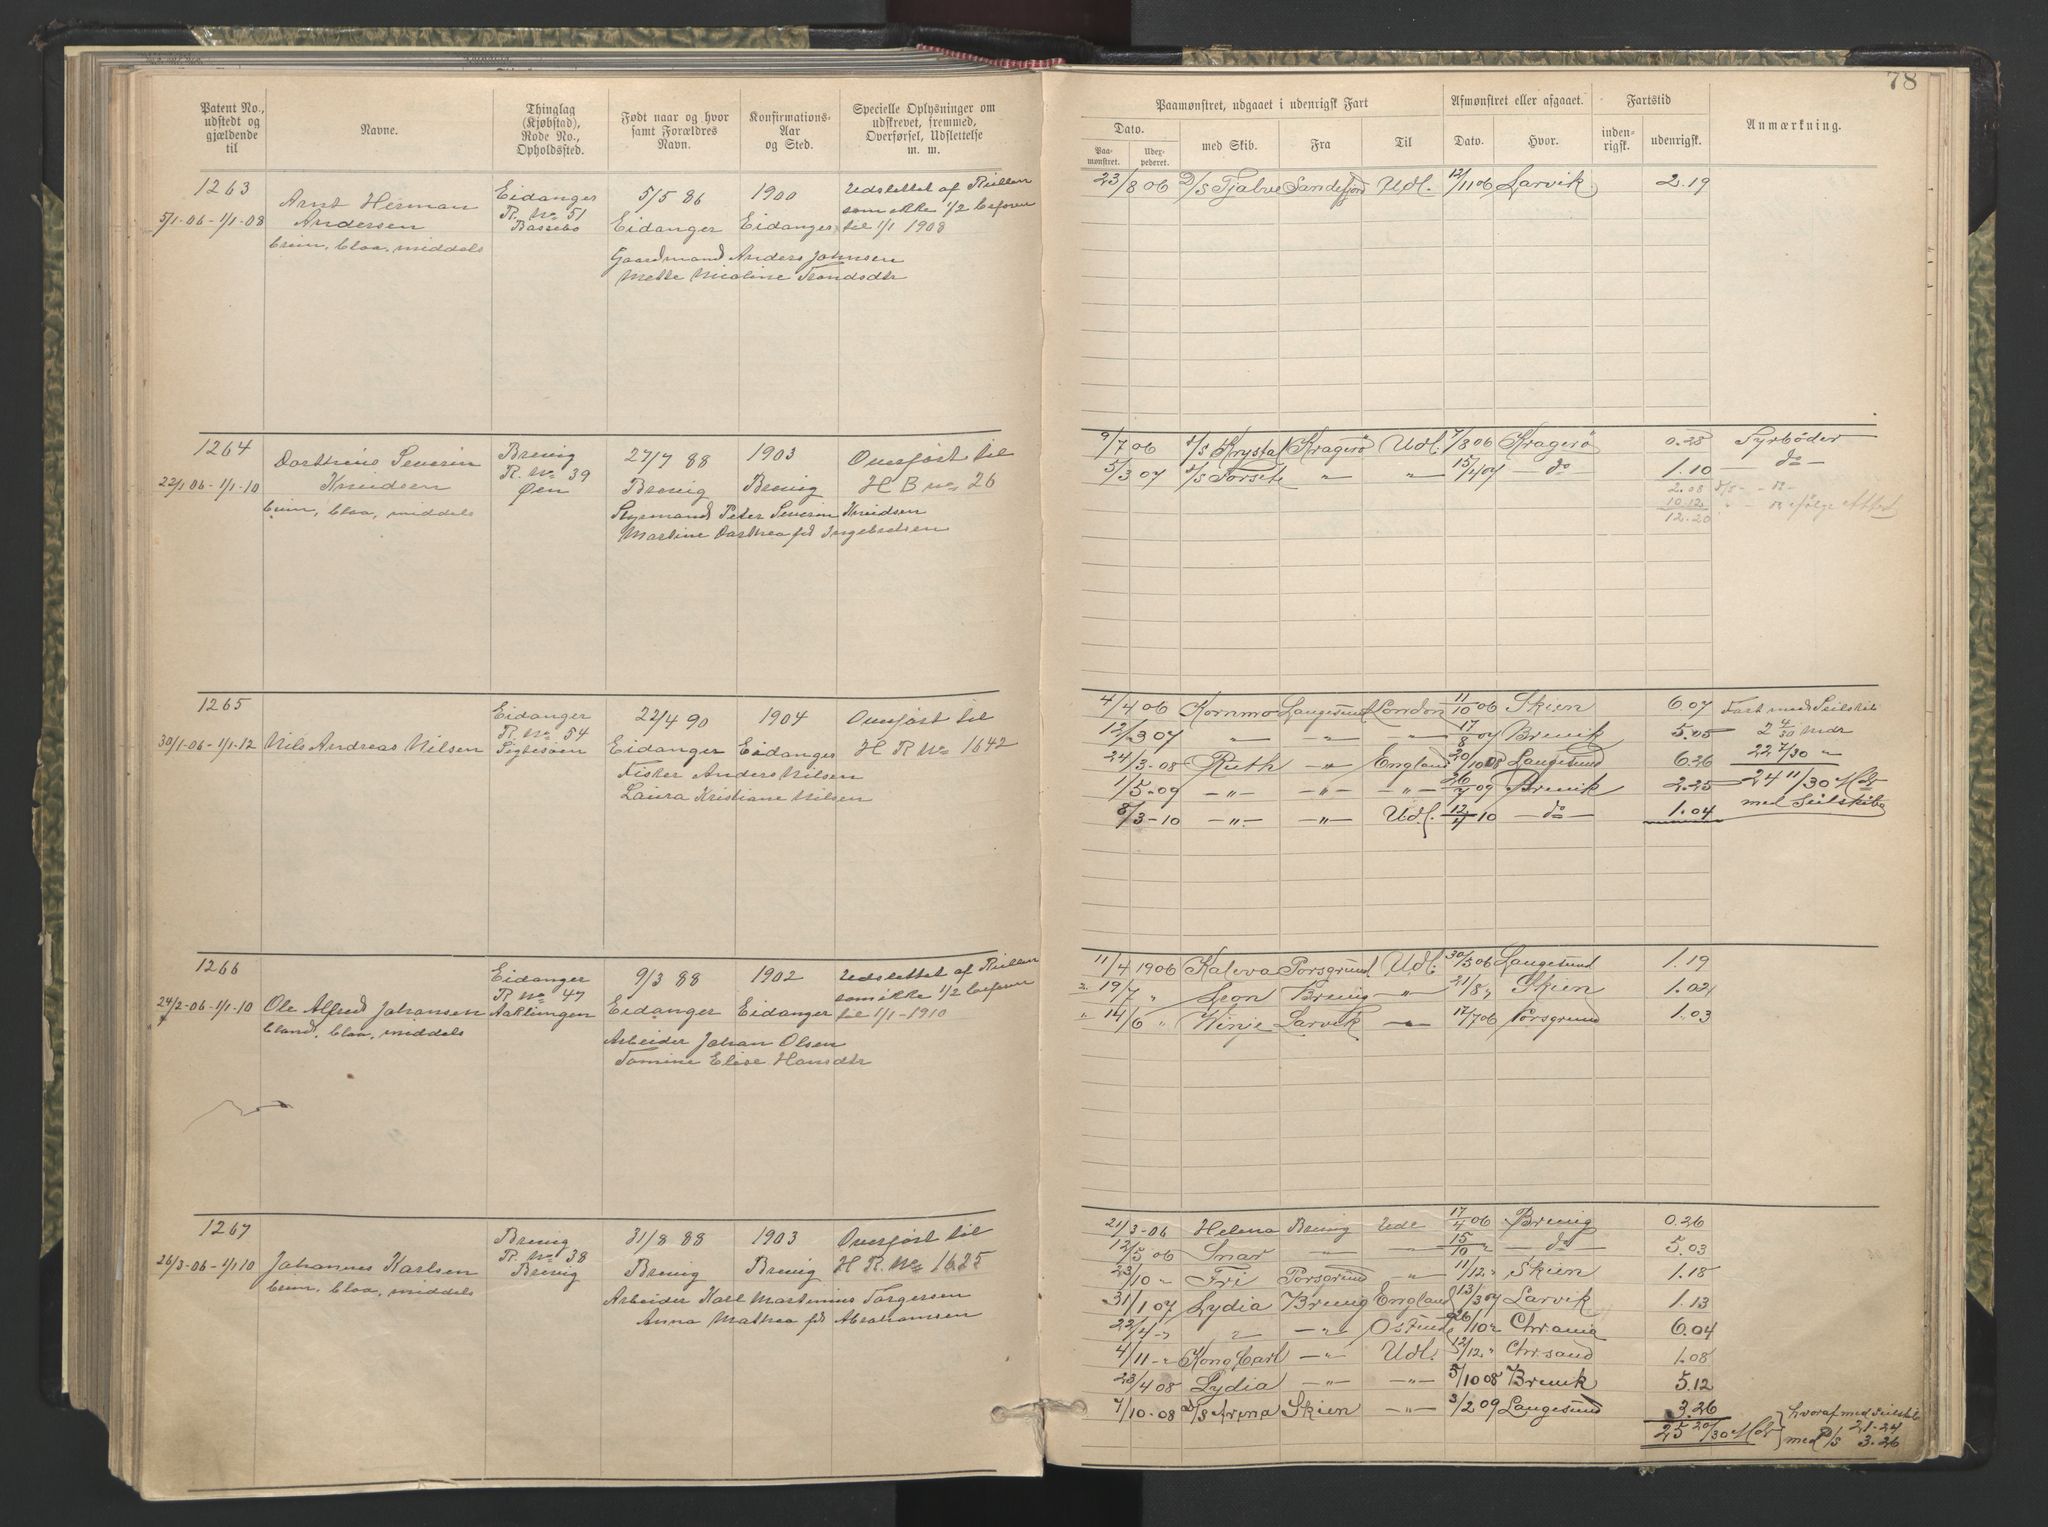 78
Patent No., udstedt og gjældende til
Navne.
Thinglag (Kjøbstad), Rode No., Opholdssted.
Født naar og hvor samt Forældres Navn.
Konfirmations-Aar og Sted.
Specielle Oplysninger om udskrevet, fremmed, Overførsel, Udslettelse m. m.
Paamønstret, udgaaet i udenrigsk Fart
Afmønstret eller afgaaet.
Fartstid
Anmærkning.
Dato.
Paamønstret.
Udexpederet.
med Skib.
Fra
Til
Dato.
Hvor.
indenrigsk.
udenrigsk.
1263
5/1-06-1/1-08
Arnt Herman
Andersen
brun, blaa, middels
Eidanger
R. No 51
Bassebo
5/5 86
Eidanger
1900
Eidanger
Udslettet af Rullen
som ikke 1/2 befaren
til 1/1 1908
Gaardmand Anders Johnsen
Mette Nicoline Trondsdtr
23/8 06 D/S Tjalve Sandefjord Udl. 12/11 06 Larvik 2.19
1264
22/1 06-1/1-10
Dortheus Severin
Knudsen
brun, blaa, middels
Brevig
R. No 39
Øen
27/7 88
Brevig
1903
Brevig
Overført til
H B no 26
Styrmand Peter Severin Knudsen
Martine Dorthea fdt Ingebretsen
9/7 06 s/s Krystal Kragerö Udl. 7/8 06 Kragerö 0.28 Fyrböder
5/3 07 s/s Forsete " " 15/4 07 — do — 1.10 — do —
2.08
10.12
12.20
1265
30/1-06-1/1-12
Nils Andreas Nilsen
Eidanger
R. No 54
22/4 90
Eidanger
1904
Eidanger
Overført til
H R No 1642
Fisker Anders Nilsen
Laura Kristiane Nilsen
4/4 06 Kornmo Langesund London 11/10 06 Skien 6.07 Fart med Seilskib
12/3 07 — " — — " — — " — 17/8 07 Brevik 5.05 2 4/30 Mdr
24/3-08 Ruth — " — England 20/10 08 Langesund 6.26 22 7/30 "
1/5-09 — " — — " — — " — 26/7 09 Brevik 2.25 24 11/30 Mdr
8/3-10 — " — — " — Udl. 12/4 10 — do — 1.04 med Seilskibe
1266
24/2-06-1/1-10
Ole Alfred Johansen
blond, blaa, middels
Eidanger
R. No 47
Aaklungen
9/3 88
Eidanger
1902
Eidanger
Udslettet af Rullen
som ikke 1/2 befaren
til 1/1-1910
Arbeider Johan Olsen
Tomine Elise Hansdtr
11/4 1906 Kaleva Porsgrund Udl. 30/5 06 Langesund 1.19
19/7 " Leon Brevig — " — 21/8 " Skien 1.02
14/6 " Kinje Larvik — " — 17/7 06 Porsgrund 1.03
1267
26/3-06-1/1 10
Johannes Karlsen
brun, blaa, middels
Brevig
R. No 38
Brevig
31/8 88
Brevig
1903
Brevig
Overført til
H R. No 1625
Arbeider Karl Martinius Torgersen
Anna Mathea fdt Abrahamsen
21/3-06 Helena Brevig Udl 17/4 06 Brevig 0.26
12/5 06 Snar — " — " 15/10 " — do — 5.03
23/10 " Fri Porsgrund " 11/12 " Skien 1.18
31/1 07 Lydia Brevig England 13/3 07 Larvik 1.13
22/4 " " — " — Ostende 26/10 " Chr.ania 6.04
4/11 " Kong Carl — " — Udl. 12/12 " Chr.sand 1.08
23/4 08 Lydia — " — — " — 5/10 08 Brevik 5.12
7/10-08 D/S Arena Skien — " — 3/2 09 Langesund 3.26
25 20/30 Mdr
hvoraf med Seilskib
21-24
med D/S 3.26